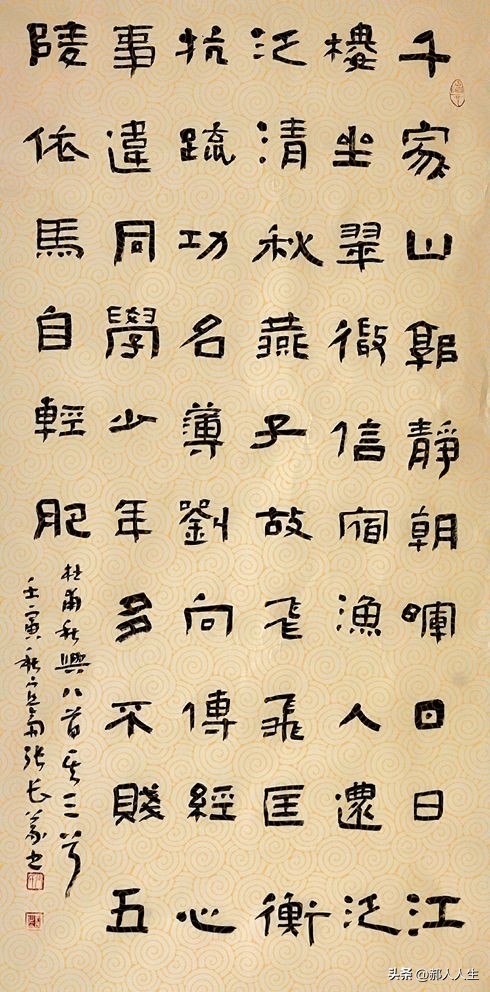 千家山郭靜朝暉日日江
樓坐翠微信宿漁人還泛
泛清秋燕子故飛飛匡衡
抗疏功名薄劉向傳經心
事違同學少年多不賤五
陵依馬自輕肥
杜甫秋興八首其三
壬寅秋張長義書
头条 @郝人人生